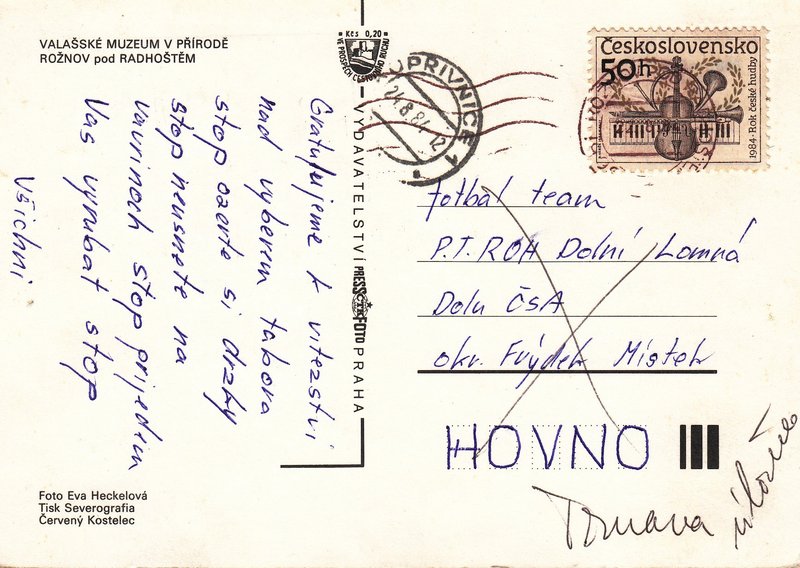 VALAŠSKÉ MUZEUM V PŘÍRODĚ
ROŽNOV pod RADHOŠTĚM
Gratulujeme k vitezství
nad vyberem tabora
stop ozerte si drzky
stop neusnete na
vavrinoch stop prijedem
Vas vyrubat stop
Všichni
Foto Eva Heckelová
Tisk Severografia
Červený Kostelec
Kčs 0,20
VE PROSPĚCH CESTOVNÍHO RUCHU
VYDAVATELSTVÍ PRESSFOTO PRAHA
ČTK
OPŘIVNICE 1
24.8.84 12
Československo
50h
1984 · Rok české hudby
fotbal team
P.T. ROH Dolní Lomná
Dolu ČSA
okr. Frýdek Místek
HOVNO